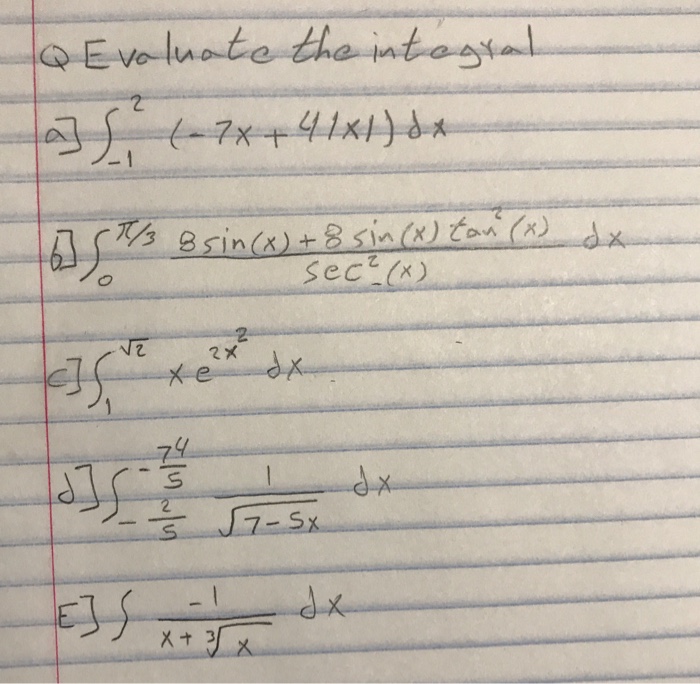 Q Evaluate the integral
a] ∫_{-1}^{2} (-7x + 4|x|) dx
b] ∫_{0}^{π/3} \frac{8 sin(x) + 8 sin(x) tan^2(x)}{sec^2(x)} dx
c] ∫_{1}^{√2} x e^{2x^2} dx
d] ∫_{-\frac{2}{5}}^{-\frac{74}{5}} \frac{1}{\sqrt{7-5x}} dx
E] ∫ \frac{-1}{x + \sqrt[3]{x}} dx